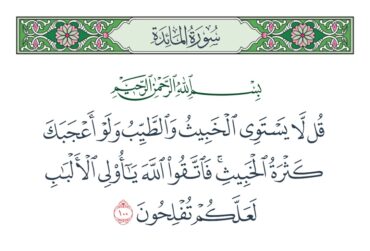 سُورَةُ المَائِدَةِ
بِسْمِ ٱللَّهِ ٱلرَّحْمَٰنِ ٱلرَّحِيمِ
قُل لَّا يَسْتَوِى ٱلْخَبِيثُ وَٱلطَّيِّبُ وَلَوْ أَعْجَبَكَ
كَثْرَةُ ٱلْخَبِيثِ ۚ فَٱتَّقُوا۟ ٱللَّهَ يَـٰٓأُو۟لِى ٱلْأَلْبَـٰبِ
لَعَلَّكُمْ تُفْلِحُونَ ١٠٠